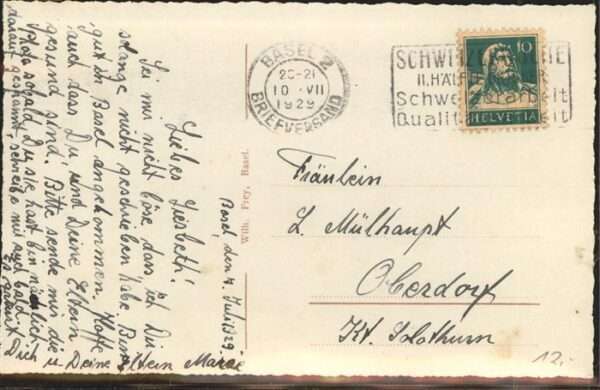 BASEL 2
20-21
10.VII
1929
BRIEFVERSAND
SCHWEIZER
II. HÄLF
Schweizerarbeit
Qualit
10
HELVETIA
Wilh. Frey, Basel.
Basel, den 9. Juli 1929.
Liebes Liesbeth!
Sei mir nicht böse dass ich Dir
solange nicht geschrieben habe. Bin
gut in Basel angekommen. Hoffe
auch dass Du und Deine Eltern
gesund sind. Bitte sende mir die
Photo sobald Du sie hast bin nämlich
darauf gespannt, schreibe mir auch bald
Es grüsst
Dich u. Deine Eltern
Fräulein
L. Mülhaupt
Oberdorf
Kt. Solothurn
12.-